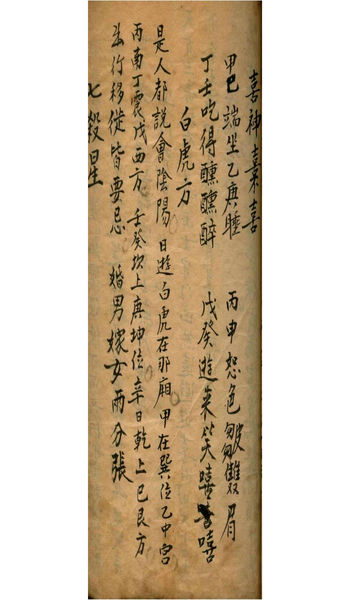 喜神喜
甲巳端坐乙庚睡 丙申怒色皺雙眉
丁壬吃得醺醺醉 戊癸遊來笑嘻嘻
白虎方
是人都說會陰陽 日遊白虎在那廂 甲在巽位乙中宮
丙南丁震戊西方 壬癸坎上庚坤位 辛日乾上巳艮方
出行移徙皆要忌 婚男嫁女兩分張
七殺日